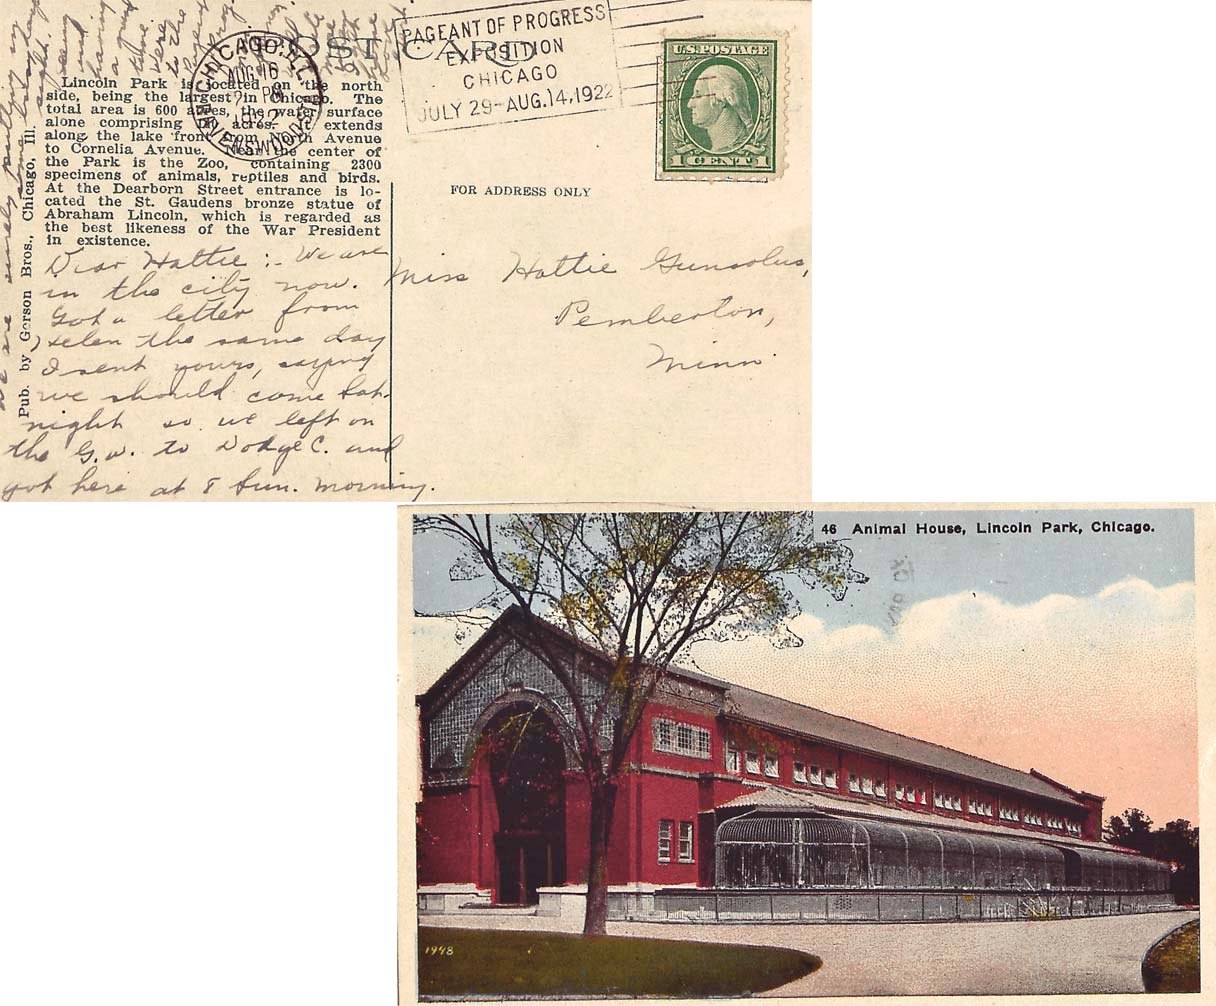 POST CARD
PAGEANT OF PROGRESS
EXPOSITION
CHICAGO
JULY 29-AUG.14,1922
CHICAGO, ILL.
AUG 16
PM
1922
RAVENSWOOD STA.
U.S. POSTAGE
1 CENT 1
Lincoln Park is located on the north
side, being the largest in Chicago. The
total area is 600 acres, the water surface
alone comprising acres. It extends
along the lake front from North Avenue
to Cornelia Avenue. Near the center of
the Park is the Zoo, containing 2300
specimens of animals, reptiles and birds.
At the Dearborn Street entrance is lo-
cated the St. Gaudens bronze statue of
Abraham Lincoln, which is regarded as
the best likeness of the War President
in existence.
Pub. by Gerson Bros., Chicago, Ill.
FOR ADDRESS ONLY
Dear Hattie :- We are
in the city now.
Got a letter from
Helen the same day
I sent yours, saying
we should come Sat.
night so we left on
the G.W. to Dodge C. and
got here at 8 Sun. morning.
We are surely putting in
some busy days
and
having
a good
time.
were
to the
Miss Hattie Gunsolus,
Pemberton,
Minn.
46 Animal House, Lincoln Park, Chicago.
1948